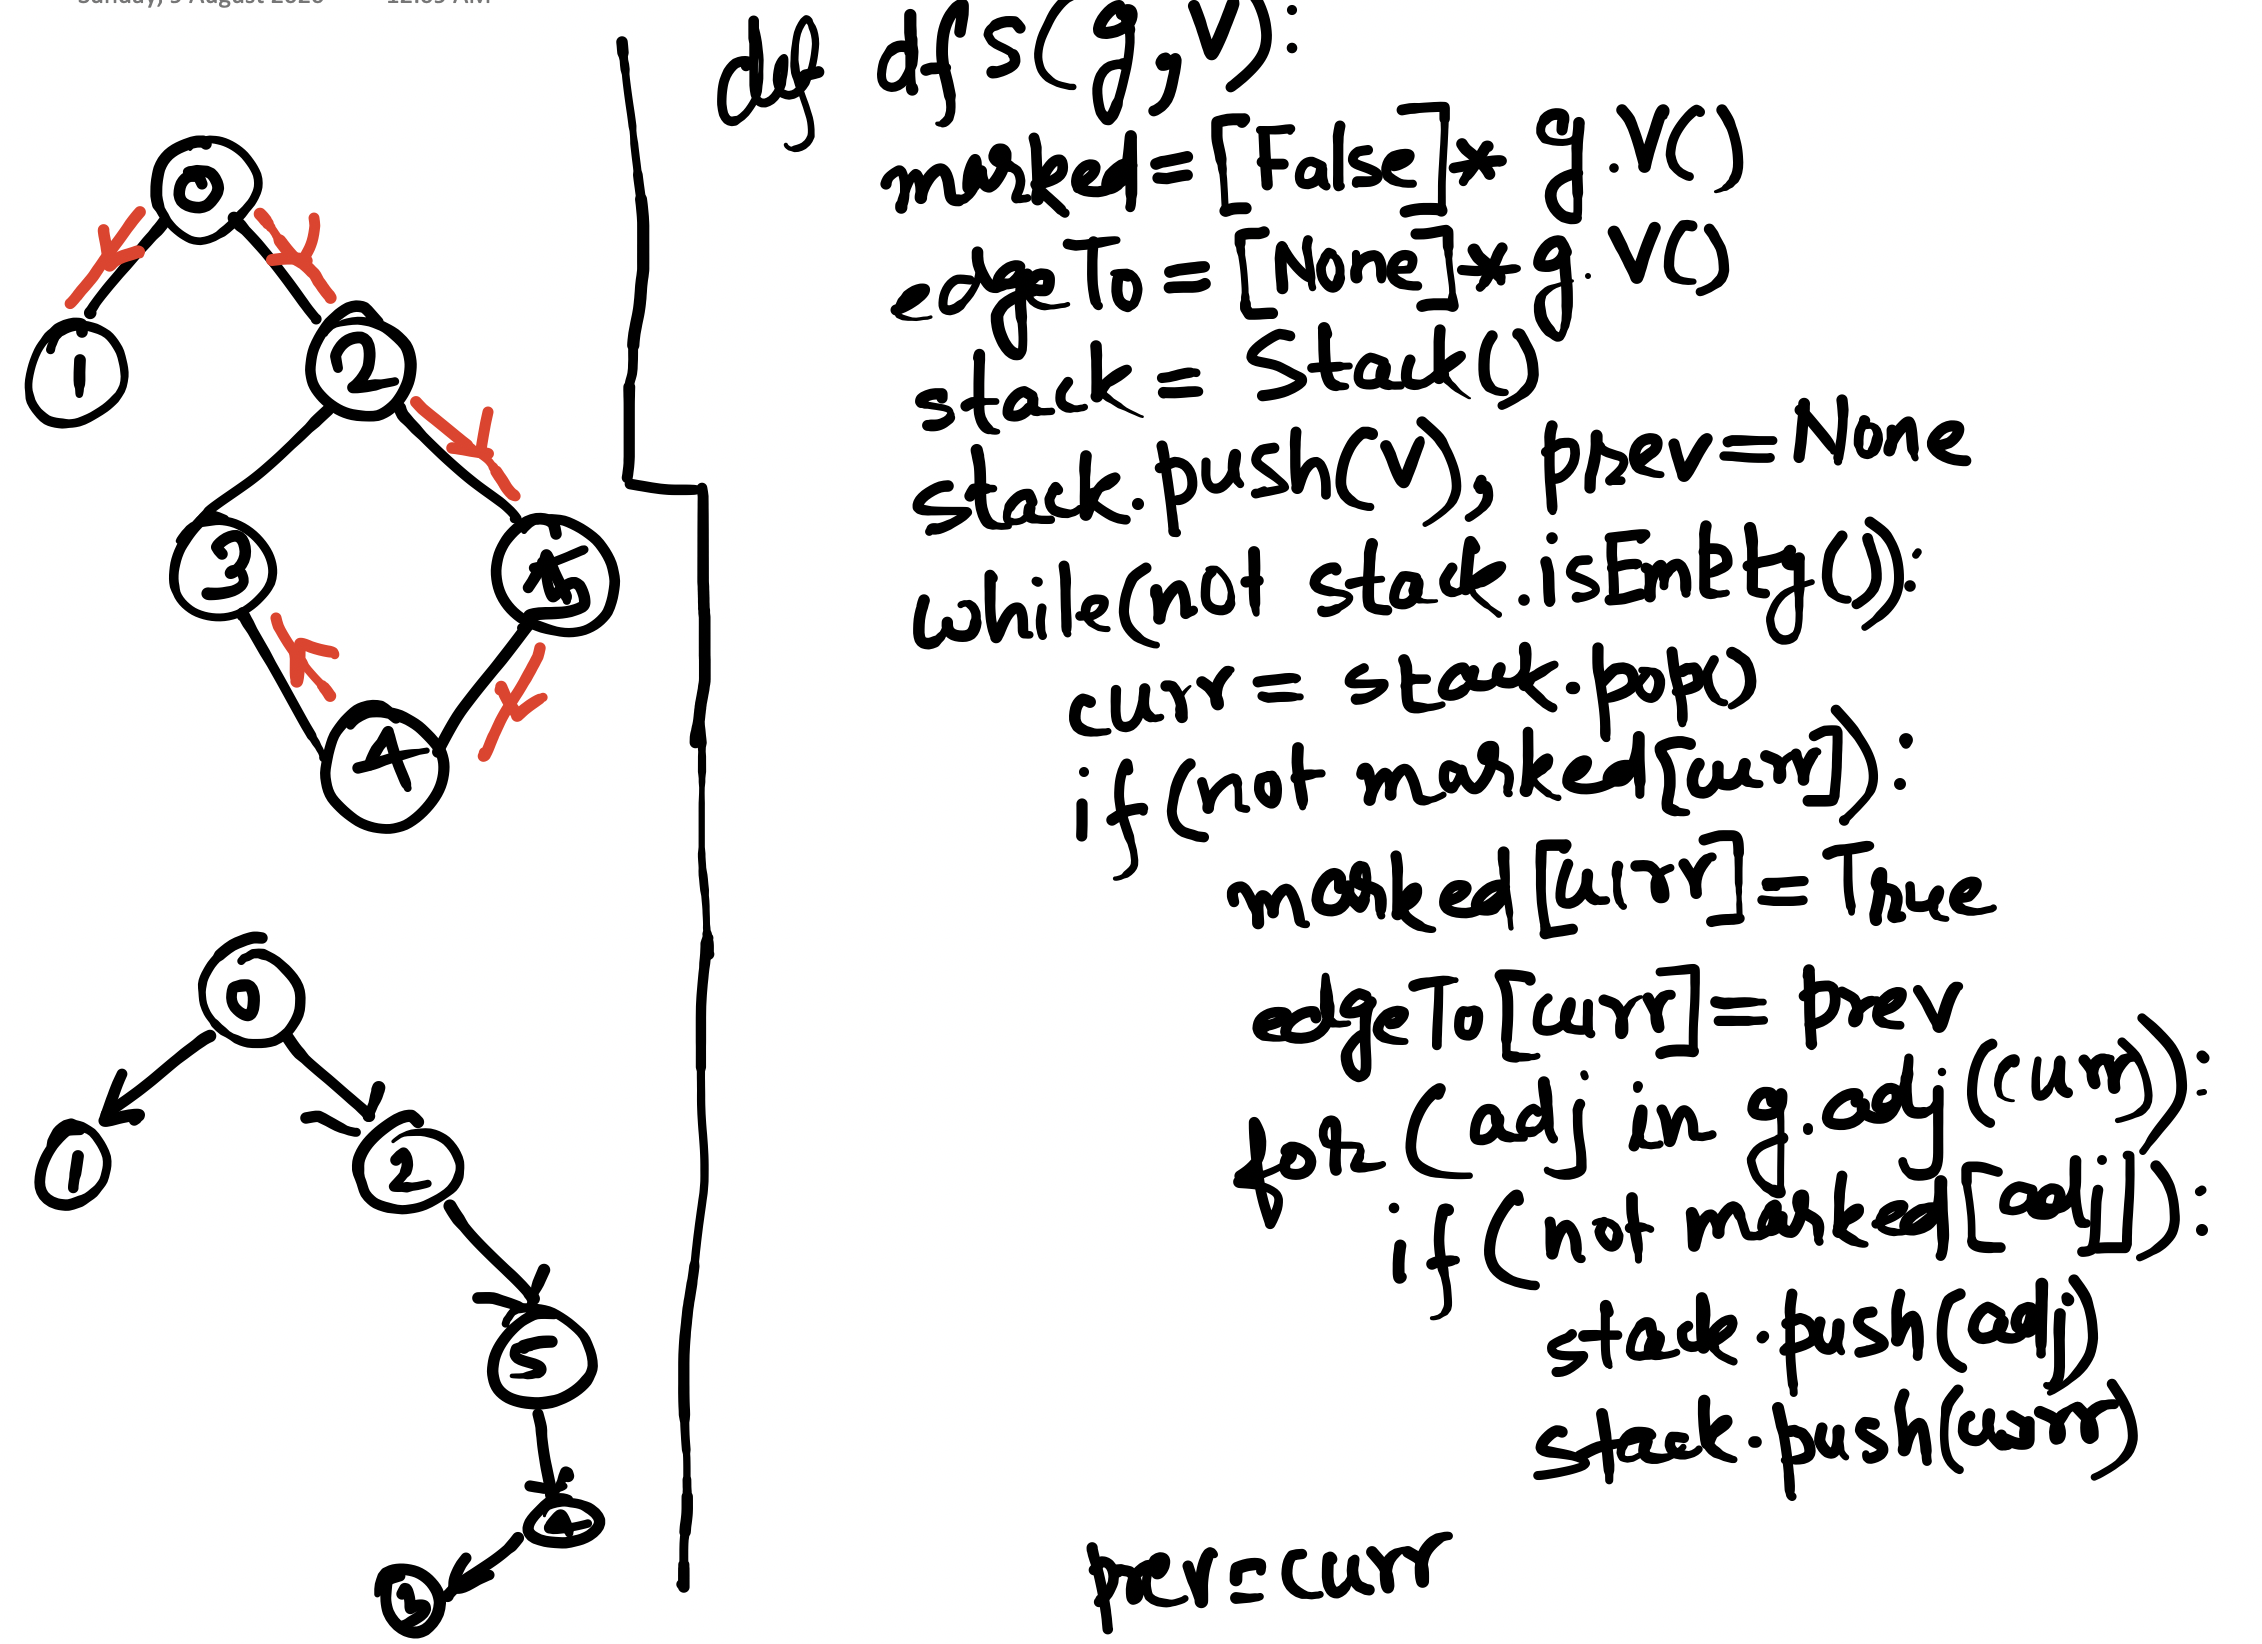 Sunday, 9 August 2020 12:09 AM
def dfs(g,V):
marked=[False]*g.V()
edgeTo=[None]*g.V()
stack=Stack()
stack.push(V); prev=None
while(not stack.isEmpty()):
curr=stack.pop()
if(not marked[curr]):
marked[curr]=True
edgeTo[curr]=prev
for(adj in g.adj(curr)):
if(not marked[adj]):
stack.push(adj)
stack.push(curr)
prev=curr
0
1
2
3
5
4
0
1
2
5
4
3